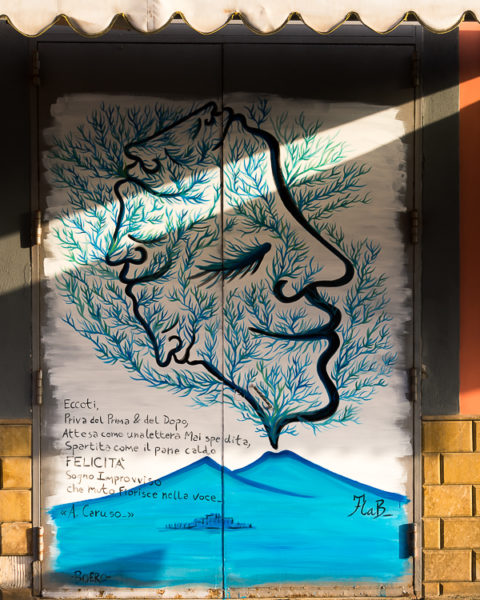 Eccoti,
Priva del Prima & del Dopo,
Attesa come una lettera Mai spedita,
Spartita come il pane caldo
FELICITÀ
Sogno Improvviso
che muto Fiorisce nella voce_
«A. Caruso_»
FlaB_
-BOERO-